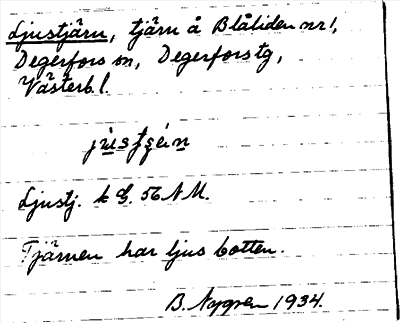 Ljustjärn, tjärn å Blåliden nr 1,
Degerfors sn, Degerfors tg,
Västerb l.
Ljustj. k G. 56 N M.
Tjärnen har ljus botten.
B. Nygren 1934.